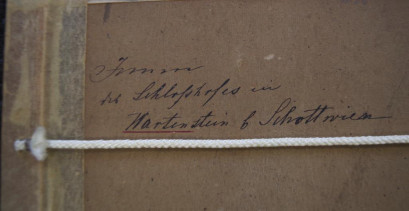 Innen
des Schloßhofes in
Wartenstein b Schottwien